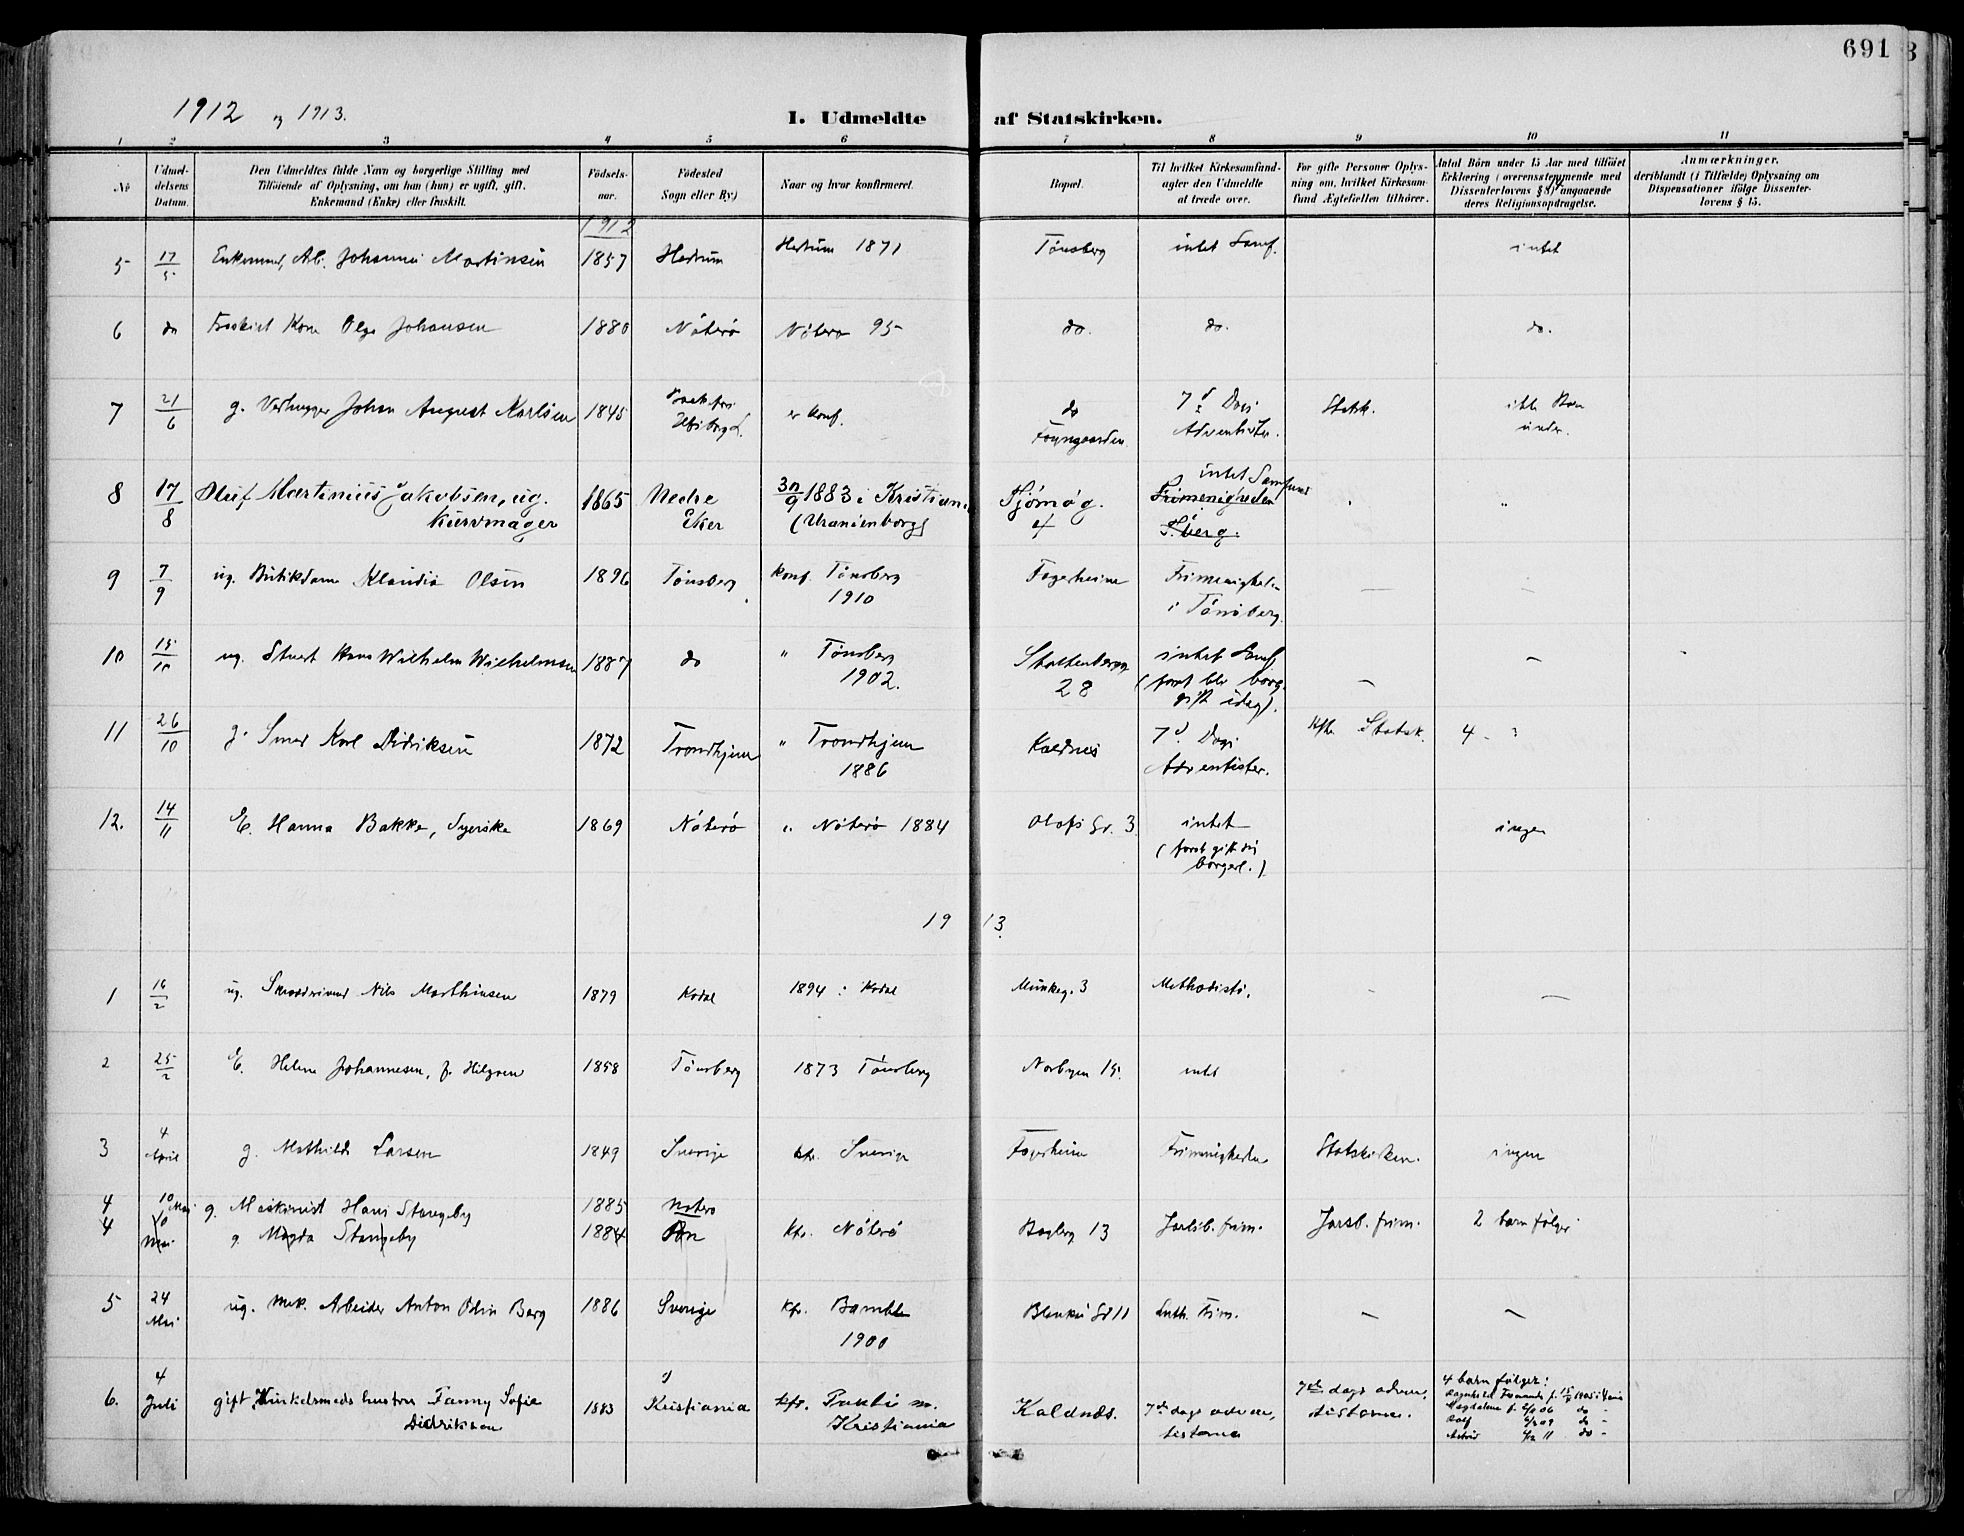 691
1912 og 1913.
I. Udmeldte af Statskirken.
1 2 3 4 5 6 7 8 9 10 11
No
Udmeldelsens Datum.
Den Udmeldtes fulde Navn og borgerlige Stilling med
Tilføiende af Oplysning, om han (hun) er ugift, gift,
Enkemand (Enke) eller fraskilt.
Födsels-
aar.
Födested
Sogn eller By)
Naar og hvor konfirmeret.
Bopæl.
Til hvilket Kirkesamfund
agter den Udmeldte
at træde over.
For gifte Personer Oplys-
ning om, hvilket Kirkesam-
fund Ægtefællen tilhörer.
Antal Börn under 15 Aar med tilföiet
Erklæring i overensstemmende med
Dissenterlovens § angaaende
deres Religionsopdragelse.
Anmærkninger.
deriblandt (i Tilfælde) Oplysning om
Dispensationer ifölge Dissenter-
lovens § 15.
1912
5 17/5 Enkemand, Arb. Johannes Martinsen 1857 Hedrum Hedrum 1871 Tönsberg intet Samf. intet
6 do Fraskilt Kone Olga Johansen 1880 Nöterö Nöterö 95 do. do. do.
7 21/6 g. Johan August Karlsen 1845 er konf. do Föyngaarden 7d Dags Adventister. Statsk. ikke Barn under.
8 17/8 Oluf Martinius Jakobsen, ug. Kurvmager 1865 Nedre Eker 30/9 1883 i Kristiania (Uranienborg) Tjømøg. 4 intet Samfund Frimenigheden T.berg. "
9 7/9 ug. Butikdame Klaudia Olsen 1896 Tönsberg konf. Tönsberg 1910 Fagerheim Frimenigheden i Tönsberg. — –
10 15/10 ug. Stuert Hans Wilhelm Wilhelmsen 1887 do " Tönsberg 1902. Stoltenbergg 28 intet Samf. (fordi blir borg. gift idag). — –
11 26/10 g. Smed Karl Didriksen 1872 Trondhjem " Trondhjem 1886 Kaldnes 7d. Dags Adventister. Statsk. 4 - ?
12. 14/11 E. Hanna Bakke, Syerske 1869 Nöterö " Nöterö 1884 Olafs Gd. 3 intet (fordi gift sig borgerl.) ingen
1913.
1 16/2 ug. Nils Marthinsen 1879 Kodal 1894 i Kodal Munkeg. 3 Methodists. - —
2 25/2 E. Helene Johannesen, f. Hilgren 1858 Tönsberg 1873 Tönsberg Norbyen 15. intet
3 4 April g. Mathilde Larsen 1849 Sverige kfr. Sverige Fagerheim Frimenigheden Statskirken. ingen
4 10 Mai g. Maskinist Hans Stangeby 1885 Nøterø
4 10 Mai g Magda Stangeby 1884 kfr. Nöterö Bagberg 13 Jarlsb. frim. Jarsb. frim. 2 barn følger
5 24 Mai ug. Mek. Arbeider Anton Odin Berg 1886 Sverige kfr. Bamble 1900 Gd 11 Luth. Frim. — —
6. 4 Juli gift, hustru Fanny Sofie Didriksen 1883 Kristiania kfr. m. Kristiania Kaldnæs. 7de dags adven-
tisterne 7de dags adven-
tisterne. 4 barn følger:
Magdalene f. 06 do
Rolf 09 do -
Astrid 11 do -